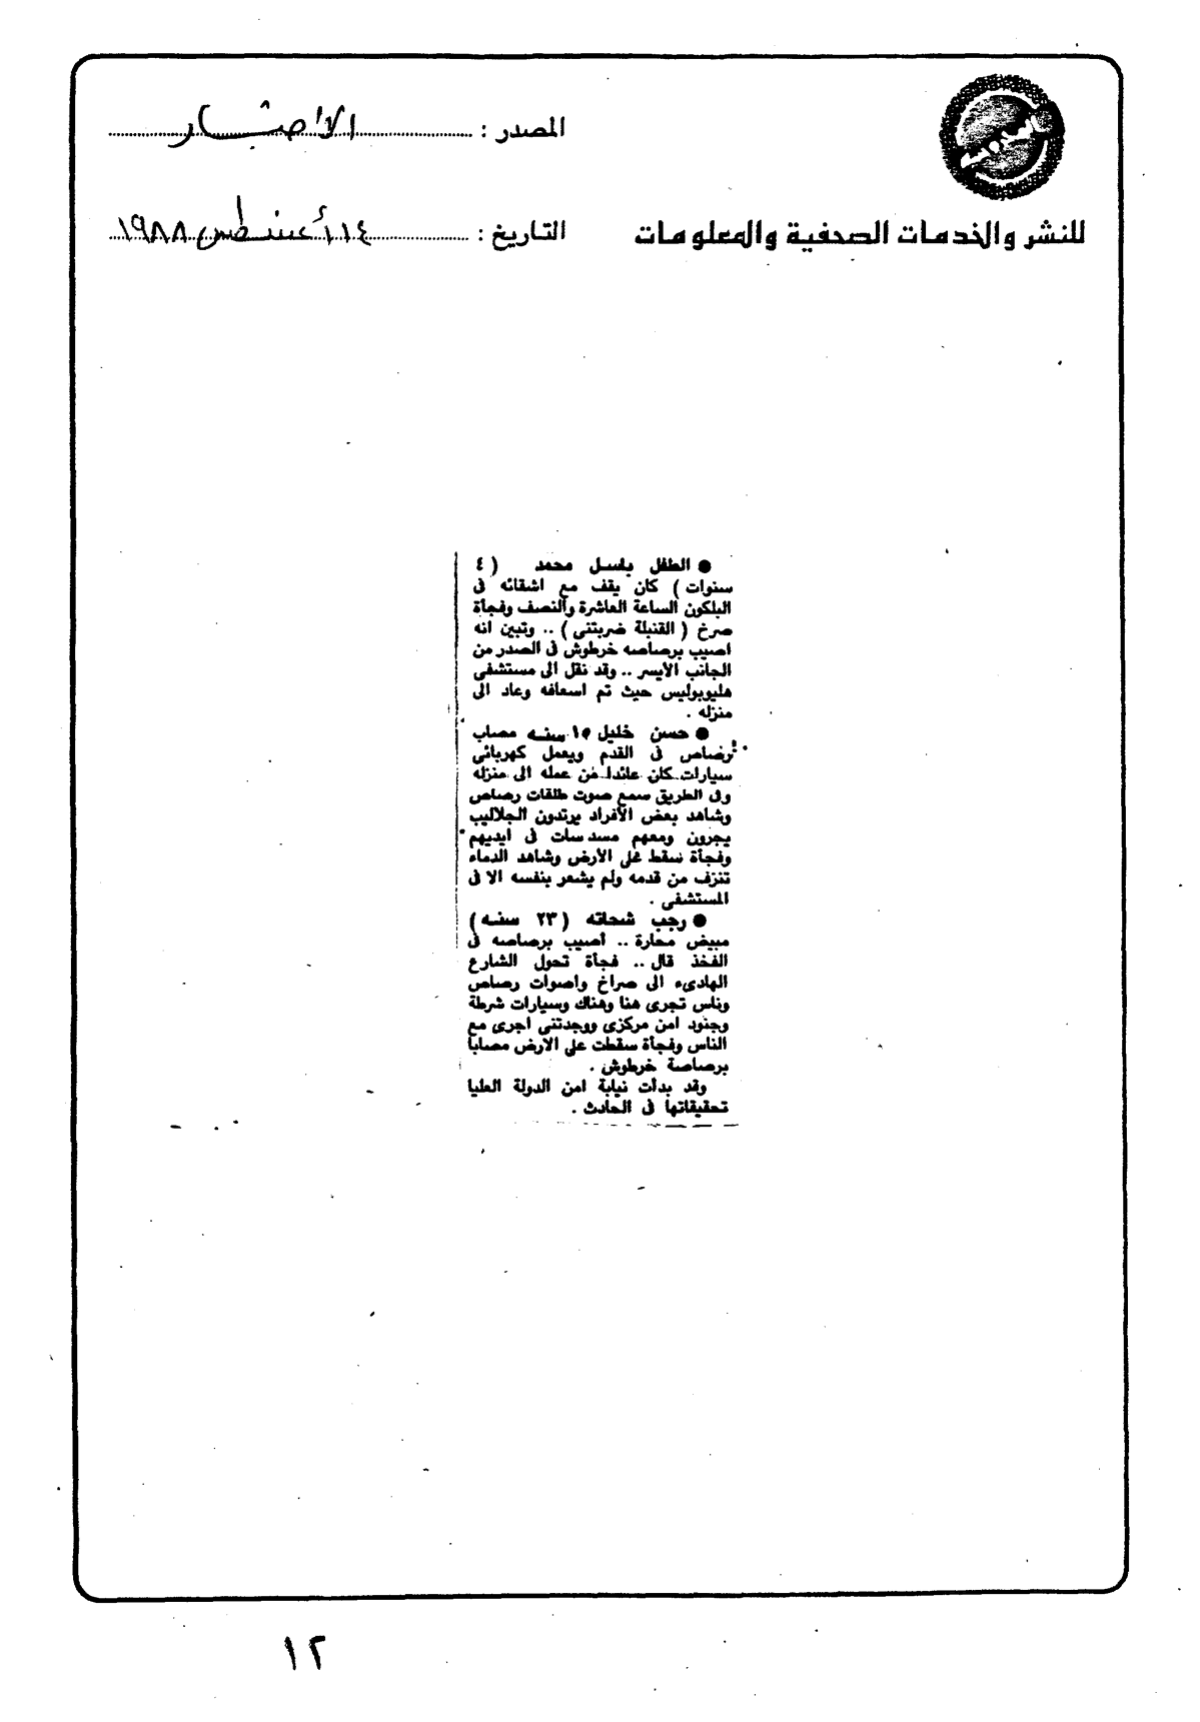 المصدر : الأخبار
للنشر والخدمات الصحفية والمعلومات
التاريخ : ١٤ أغسطس ١٩٨٨
● الطفل باسل محمد ( ٤
سنوات ) كان يقف مع اشقائه فى
البلكون الساعة العاشرة والنصف وفجأة
صرخ ( القنبلة ضربتنى ) .. وتبين انه
اصيب برصاصه خرطوش فى الصدر من
الجانب الأيسر .. وقد نقل الى مستشفى
هليوبوليس حيث تم اسعافه وعاد الى
منزله .
● حسن خليل ١٥ سنه مصاب
برصاص فى القدم ويعمل كهربائى
سيارات كان عائدا من عمله الى منزله
وفى الطريق سمع صوت طلقات رصاص
وشاهد بعض الأفراد يرتدون الجلاليب
يجرون ومعهم مسدسات فى ايديهم
وفجأة سقط على الأرض وشاهد الدماء
تنزف من قدمه ولم يشعر بنفسه الا فى
المستشفى .
● رجب شحاته ( ٢٣ سنه )
مبيض محارة .. أصيب برصاصه فى
الفخذ قال .. فجأة تحول الشارع
الهادىء الى صراخ واصوات رصاص
وناس تجرى هنا وهناك وسيارات شرطة
وجنود امن مركزى ووجدتنى اجرى مع
الناس وفجأة سقطت على الارض مصابا
برصاصة خرطوش .
وقد بدأت نيابة امن الدولة العليا
تحقيقاتها فى الحادث .
١٢